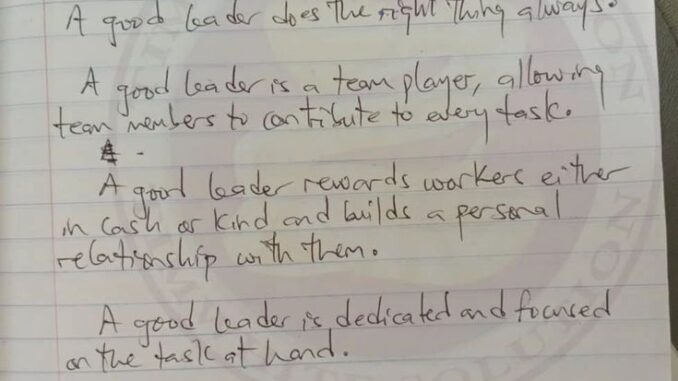 A good leader does the right thing always.
A good leader is a team player, allowing
team members to contribute to every task.
A good leader rewards workers either
in cash or kind and builds a personal
relationship with them.
A good leader is dedicated and focused
on the task at hand.